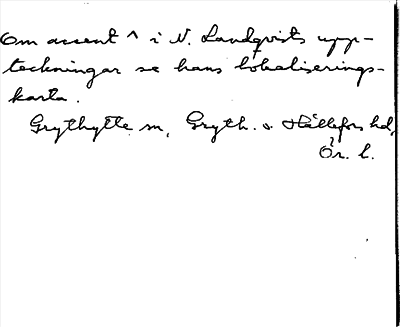 Om accent ^ i N. Landqvists upp-
teckningar se hans lokaliserings-
karta.
Grythytte sn, Gryth. o. Hällefors hd,
Ör. l.